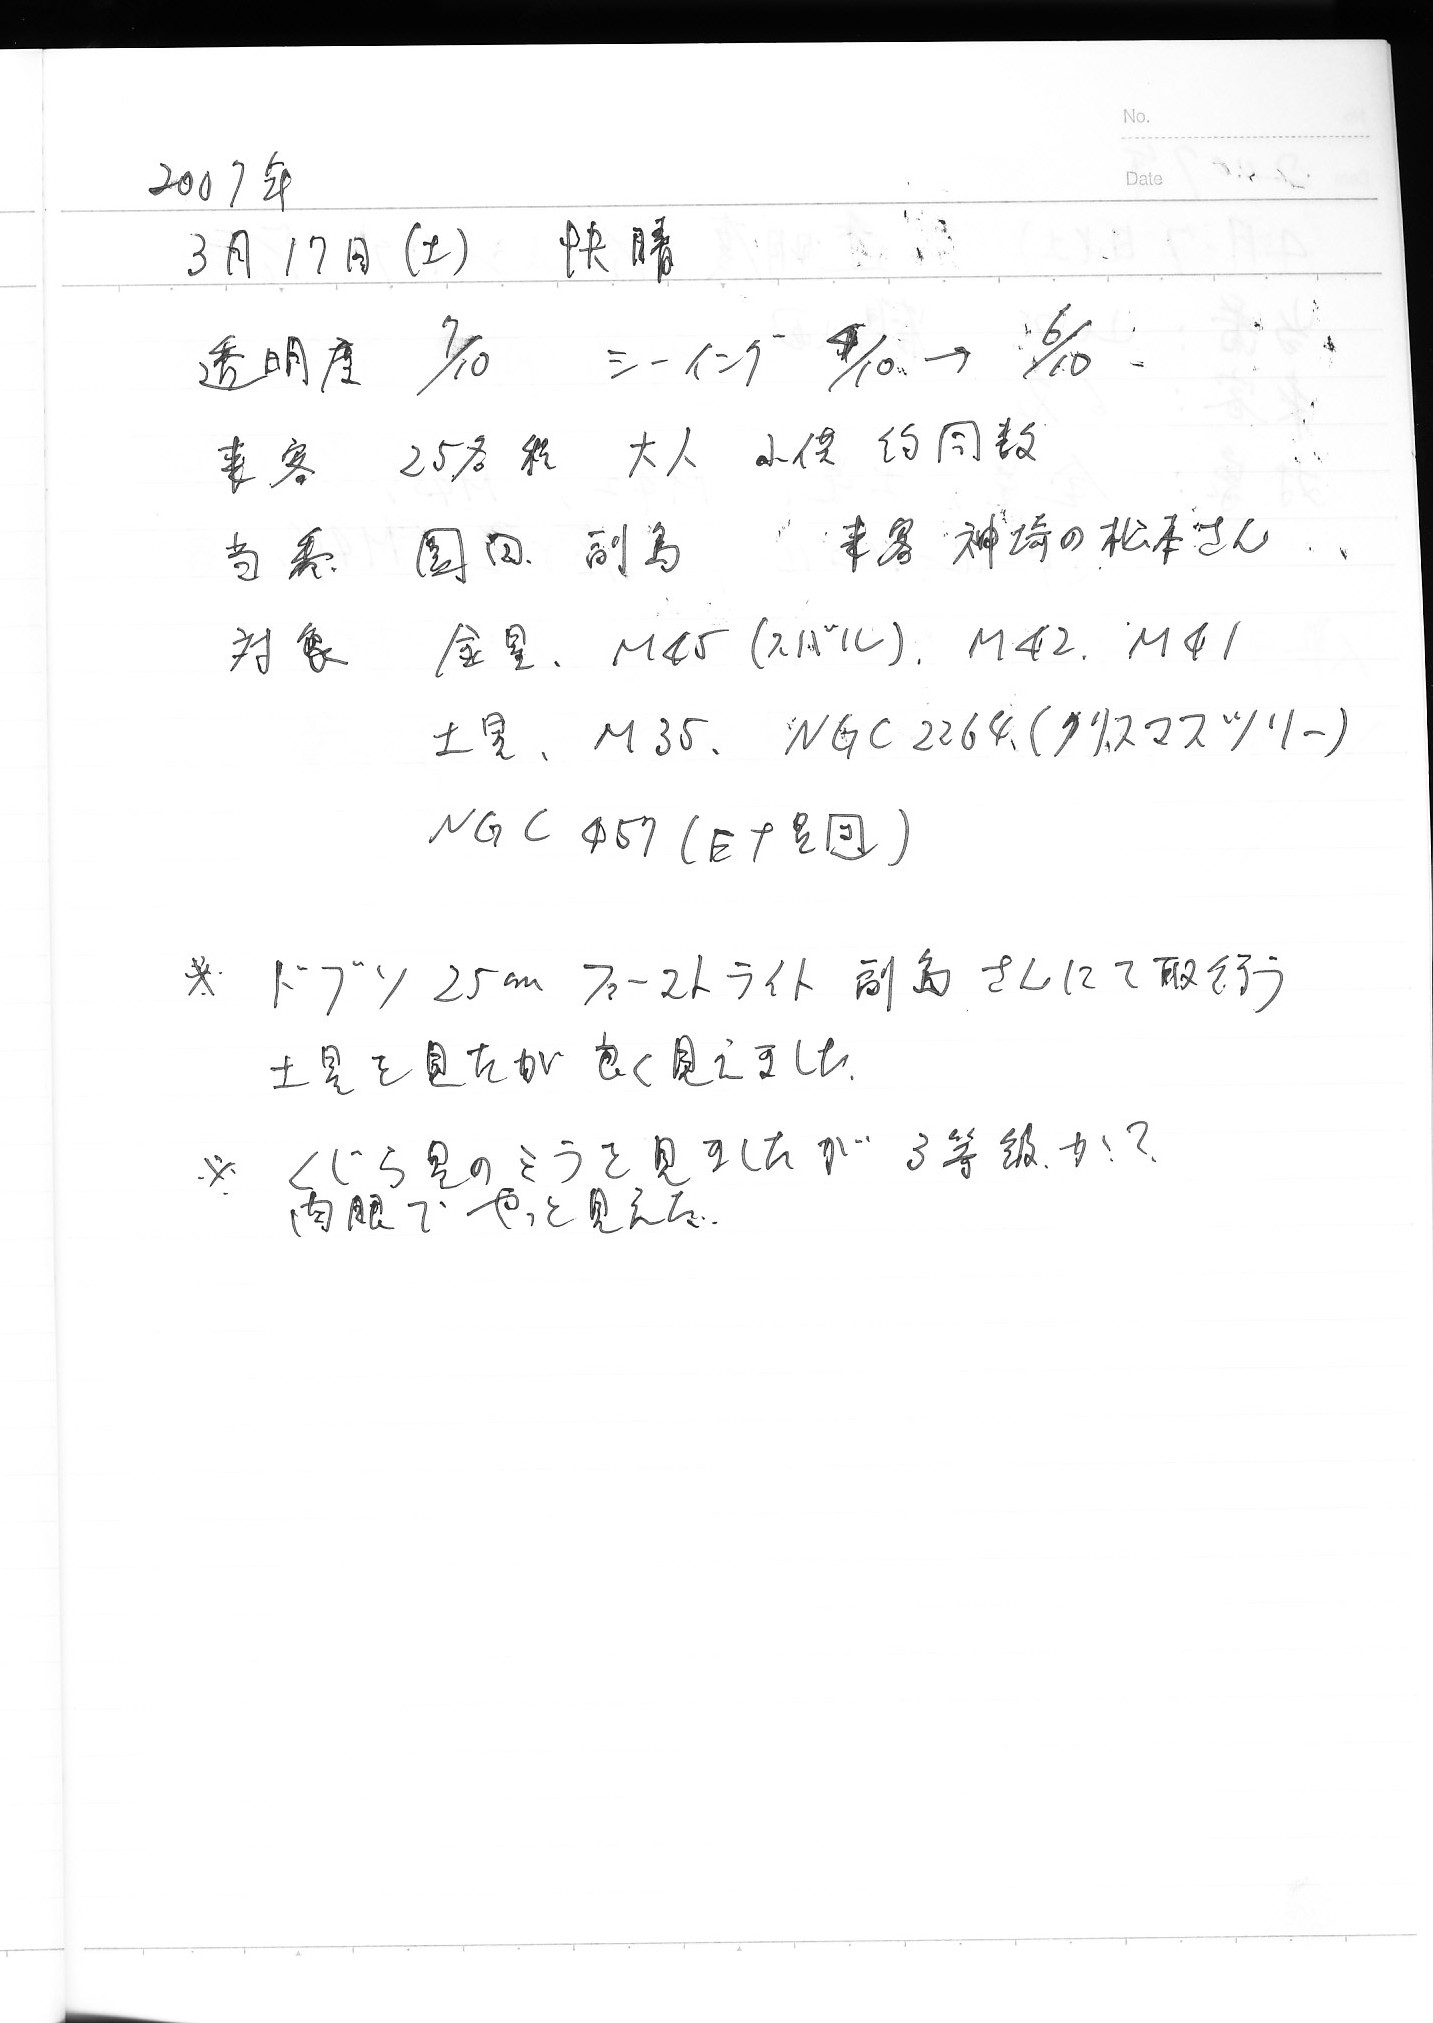 No.
Date
2007年
3月17日(土) 快晴
透明度 7/10 シーイング 4/10 → 6/10
来客 25名程 大人 小供 約同数
当番 園田 副島 来客 神埼の松本さん
対象 金星、M45(スバル)、M42、M41
土星、M35、NGC2264(クリスマスツリー)
NGC457(ET星団)
※ ドブソ25cm ファーストライト 副島さんにて取行う
土星を見たが良く見えました。
※ くじら星のミラを見ましたが 3等級か?
肉眼でやっと見えた。